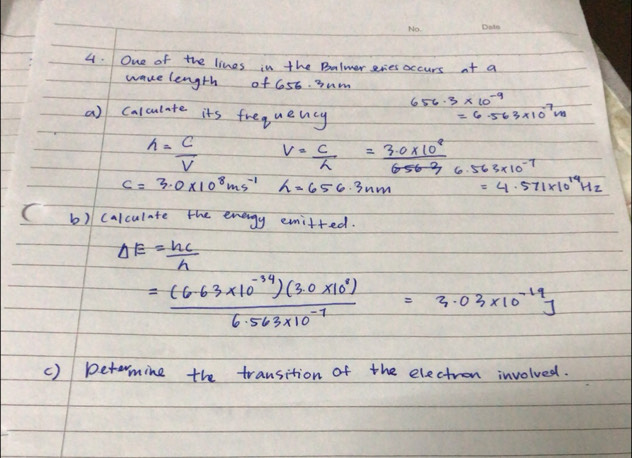 No. Date
4. One of the lines in the Balmer series occurs at a
wave length of 656.3nm
656.3 x 10⁻⁹
= 6.563x10⁻⁷ m
a) Calculate its frequency
λ = C/V V = C/λ = 3.0x10⁸/6.563x10⁻⁷
C = 3.0x10⁸ms⁻¹ λ = 656.3nm = 4.571x10¹⁴Hz
b) Calculate the energy emitted.
ΔE = hc/λ
= (6.63x10⁻³⁴)(3.0x10⁸)/6.563x10⁻⁷ = 3.03x10⁻¹⁹J
c) Determine the transition of the electron involved.